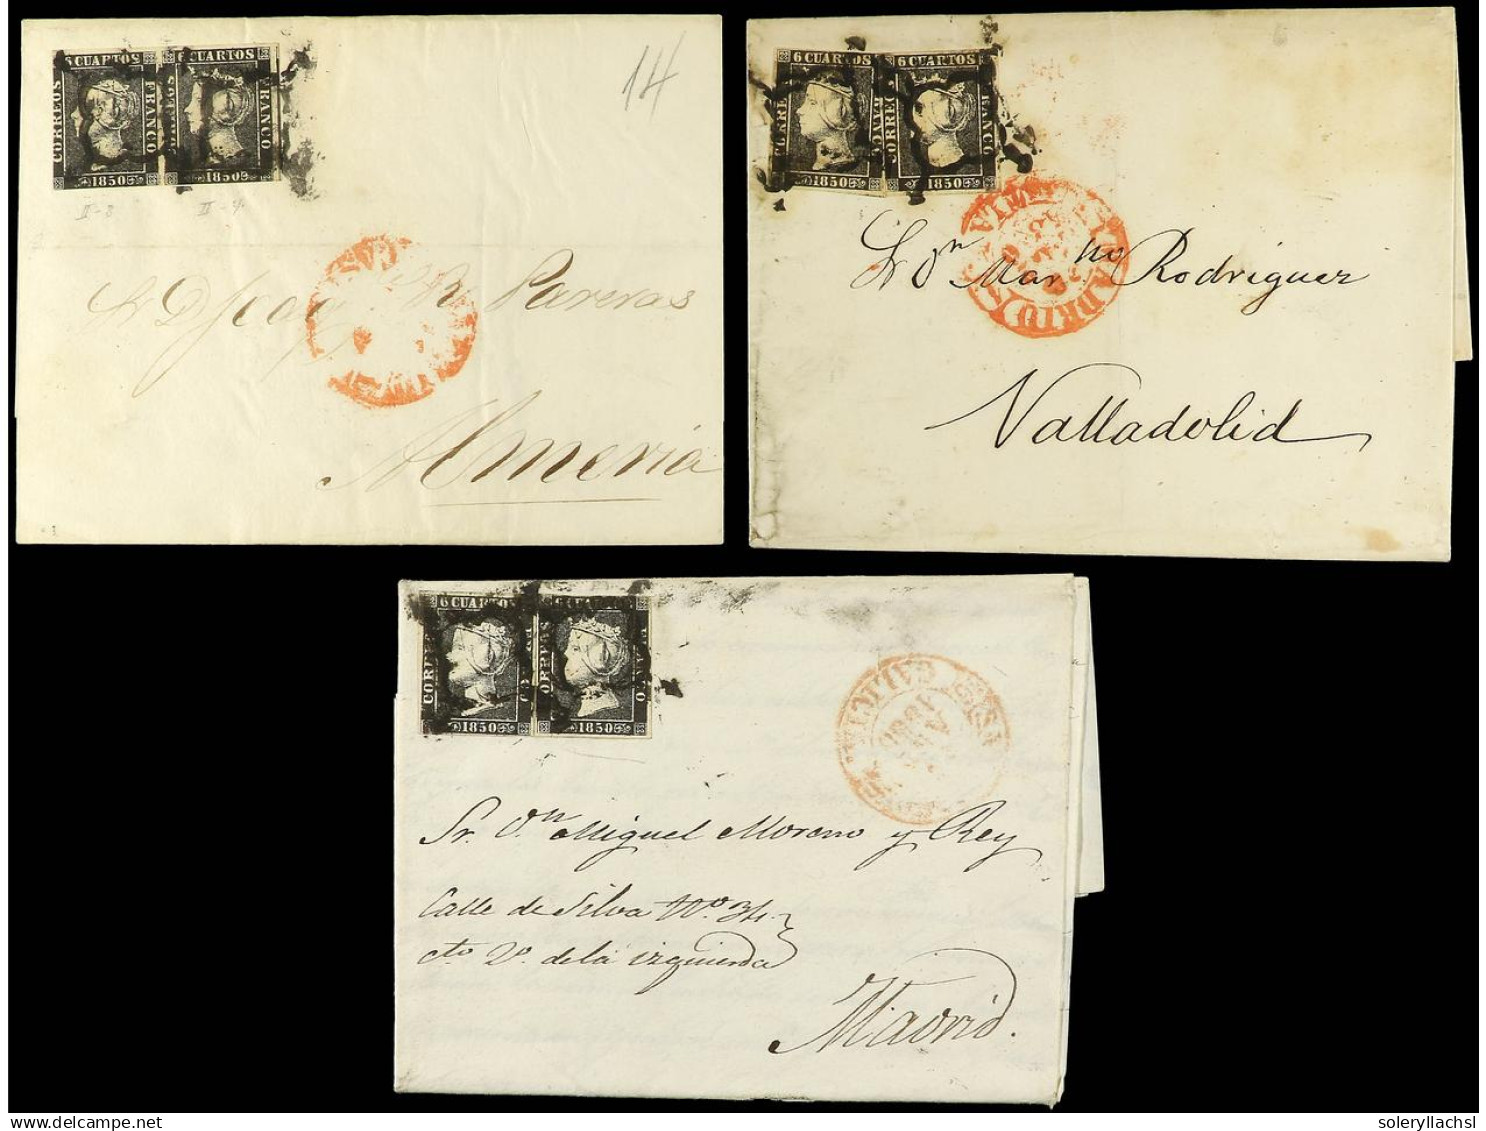 6 CUARTOS 6 CUARTOS
CORREOS FRANCO FRANCO
1850 1850
14
II-8 II-4
Pareras
Almería
6 CUARTOS 6 CUARTOS
CORREOS FRANCO CORREOS FRANCO
1850 1850
Sr Dn Marno Rodriguez
Valladolid
6 CUARTOS 6 CUARTOS
CORREOS FRANCO CORREOS FRANCO
1850 1850
1850
Sr. Dn Miguel Moreno y Rey
Calle de Silva No. 34.
cto 2o de la izquierda
Madrid.
soleryllachsl